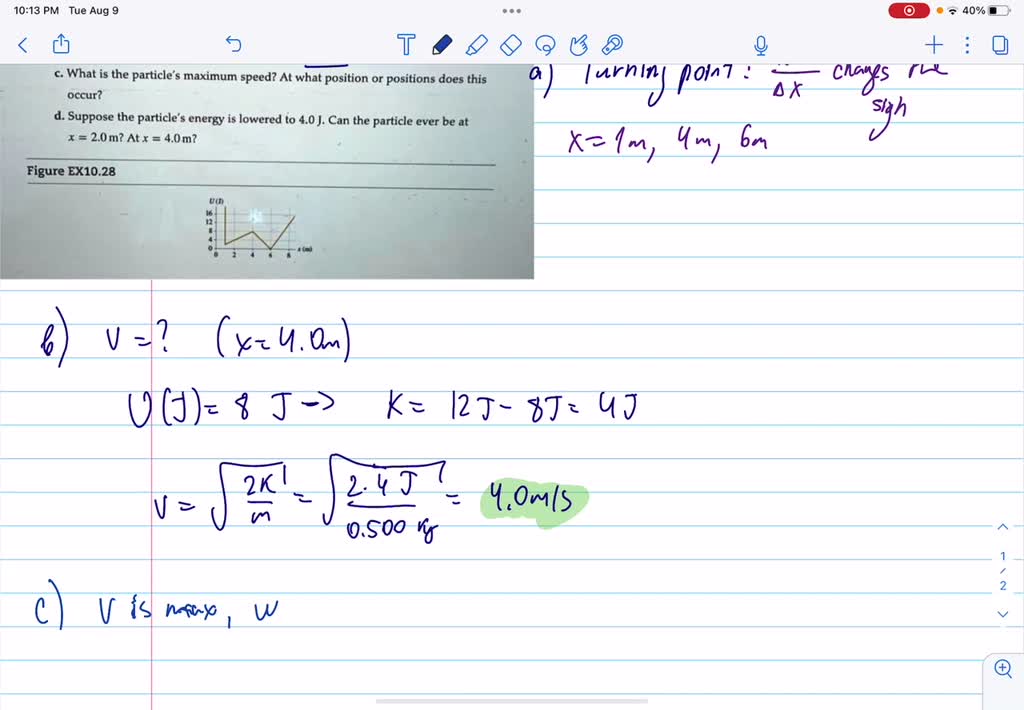 10:13 PM Tue Aug 9
40%
c. What is the particle's maximum speed? At what position or positions does this
occur?
d. Suppose the particle's energy is lowered to 4.0 J. Can the particle ever be at
x = 2.0 m? At x = 4.0 m?
Figure EX10.28
U (J)
16
12
8
4
0
0 2 4 6 8
x (m)
a) Turning point: /ΔX changes the
sigh
x = 1m, 4m, 6m
b) v = ? (x = 4.0m)
U(J) = 8 J → K = 12J - 8J = 4J
v = √(2K/m) = √(2·4 J/0.500 kg) = 4.0 m/s
c) V is max, w
1
/
2